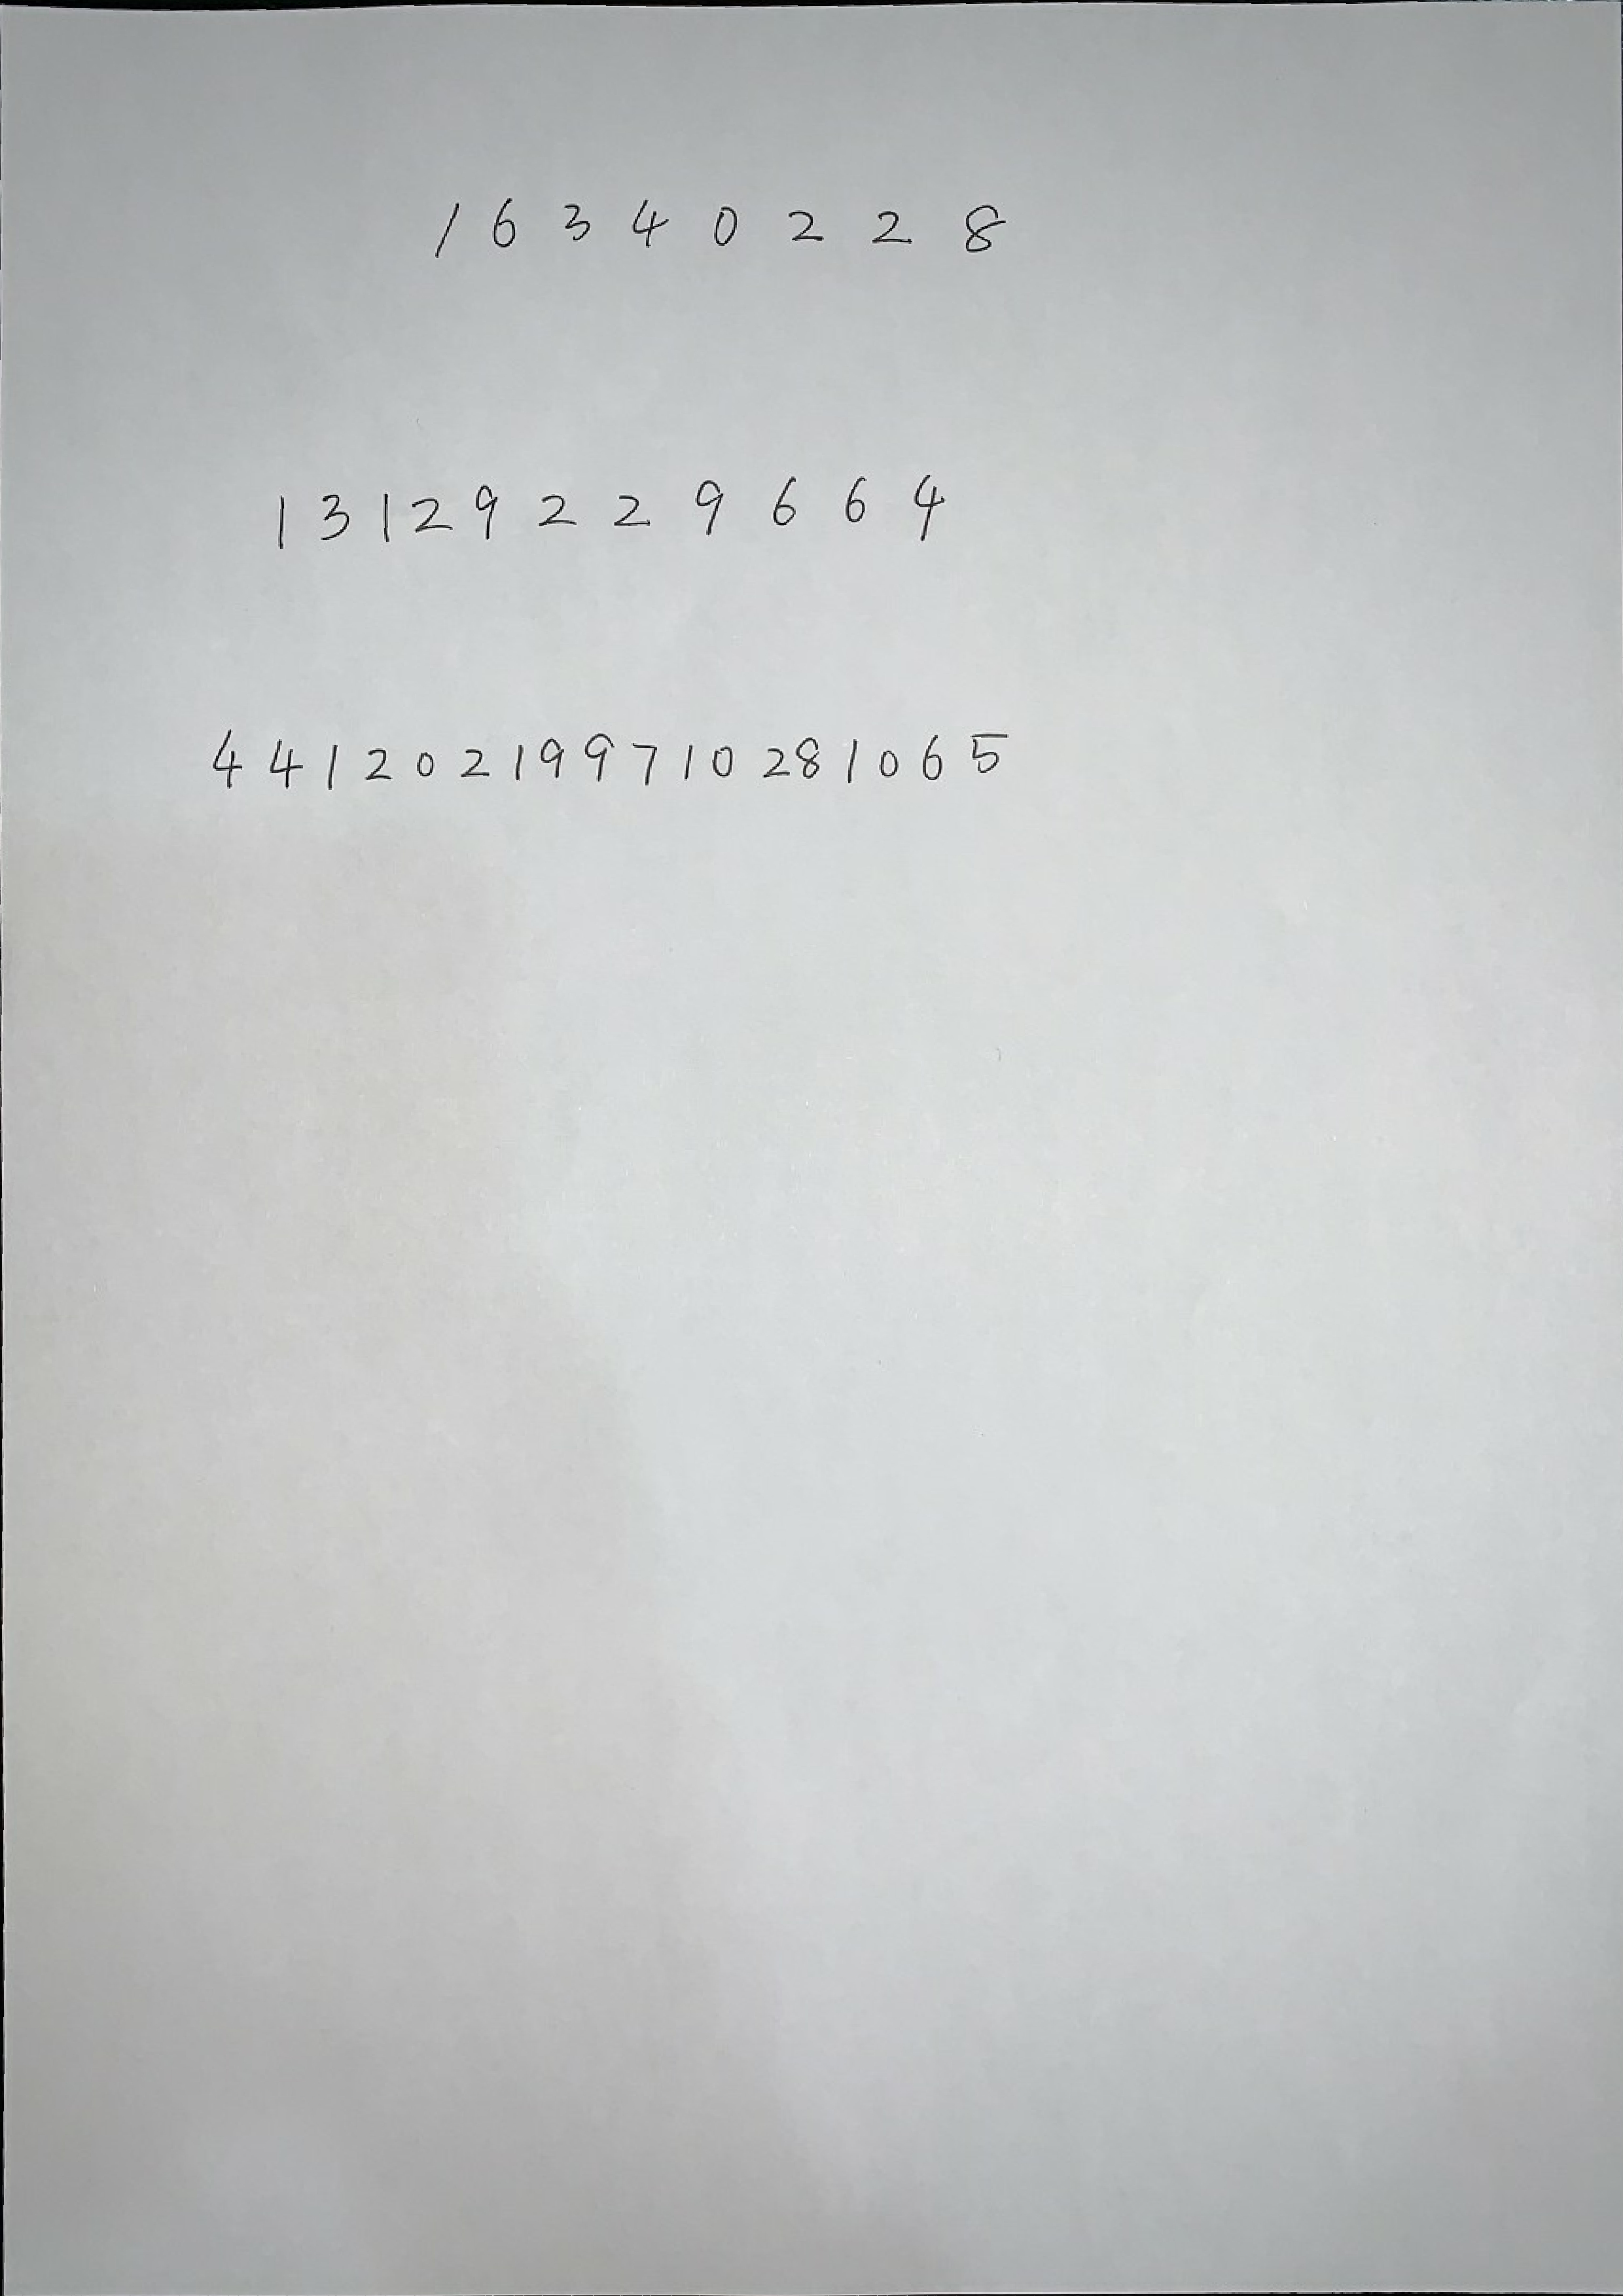 16340228
13129229664
441202199710281065